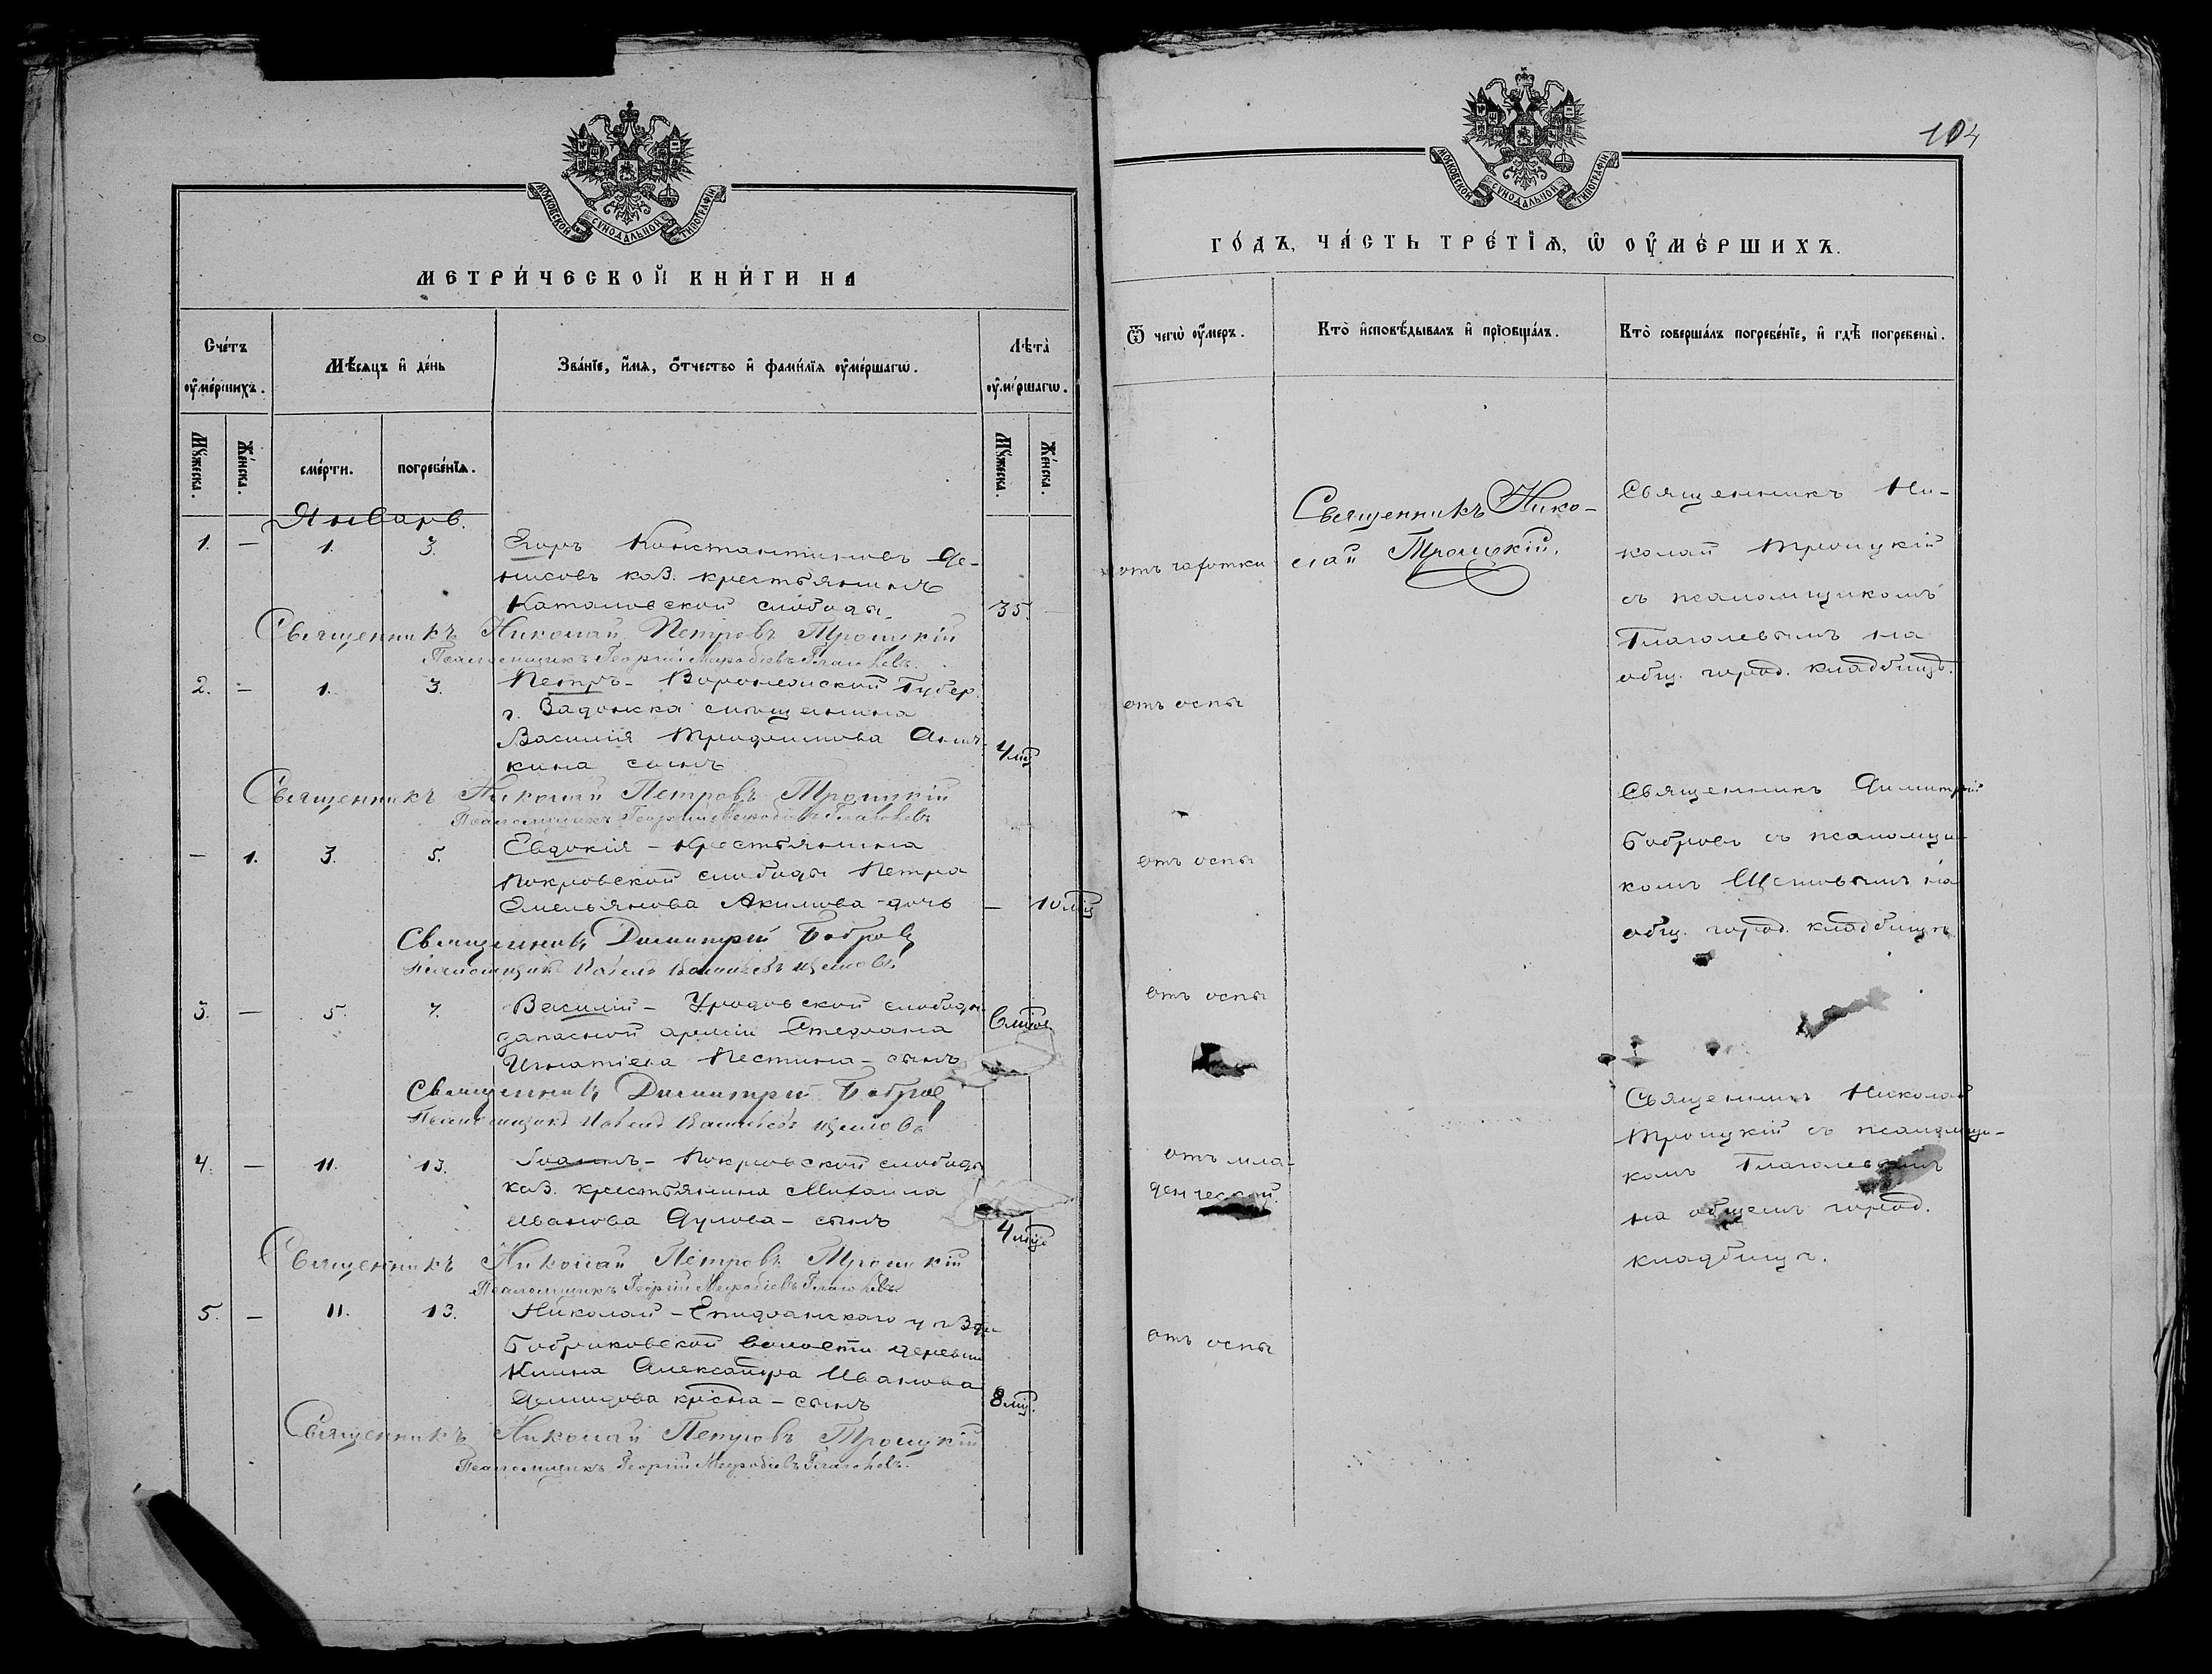 МОСКОВСКОЙ СѴНОДАЛЬНОЙ ТИПОГРАФІИ
МЕТРИ́ЧЕСКОЙ КНИ́ГИ НА
Сче́тъ ᲂу҆ме́ршихъ.
Мѣ́сяцъ и҆ де́нь
Зва́нїе, и҆́мѧ, ѻ҆́тчество и҆ фамѝлїѧ ᲂу҆ме́ршагѡ.
Лѣ́та ᲂу҆ме́ршагѡ.
Мꙋ́жеска.
Же́нска.
сме́рти.
погребе́нїѧ.
Мꙋ́жеска.
Же́нска.
Январь.
1. — 1. 3. Егоръ Константиновъ Де-
нисовъ каз. крестьянинъ
слободы. 35.
Священникъ Николай Петровъ Троицкій
Псаломщикъ Георгій Меѳодіевъ Глаголевъ.
2. — 1. 3. Петръ – Воронежской Губер.
г. Задонска мѣщанина
Василія Трофимова
кина сынъ 4 мѣс
Священникъ Николай Петровъ Троицкій
Псаломщикъ Георгій Меѳодіевъ Глаголевъ
— 1. 3. 5. Евдокія – крестьянина
Покровской слободы Петра
Емельянова Акимова – дочь — 10 мѣс
Священникъ Димитрій Бобровъ
Псаломщикъ
3. — 5. 7. Василій – слободы
запасной арміи Стефана
Игнатіева Пестина – сынъ
Священникъ Димитрій Бобровъ
Псаломщикъ
4. — 11. 13. Іоаннъ – Покровской слободы
каз. крестьянина Михаила
Иванова – сынъ 4 мѣс
Священникъ Николай Петровъ Троицкій
Псаломщикъ Георгій Меѳодіевъ Глаголевъ
5. — 11. 13. Николай – Епифанскаго у
Бобриковской волости деревни
Александра Иванова
Демидова – сынъ 8 мѣс.
Священникъ Николай Петровъ Троицкій
Псаломщикъ Георгій Меѳодіевъ Глаголевъ.
104
МОСКОВСКОЙ СѴНОДАЛЬНОЙ ТИПОГРАФІИ
ГО́ДЪ, ЧА́СТЬ ТРЕ́ТЇѦ, Ѡ҆ ᲂУ҆МЕ́РШИХЪ.
Ѿ чегѡ̀ ᲂу҆́меръ.
Кто̀ и҆сповѣ́дывалъ и҆ прїѡбща́лъ.
Кто̀ соверша́лъ погребе́нїе, и҆ гдѣ̀ погребены̀.
отъ чахотки
Священникъ Нико-
лай Троицкій.
Священникъ Ни-
колай Троицкій
съ псаломщикомъ
Глаголевымъ на
общ. город. кладбищѣ.
отъ оспы
Священникъ Димитрій
Бобровъ съ псаломщи-
комъ на
общ. город. кладбищѣ
отъ оспы
отъ оспы
Священникъ Николай
Троицкій съ псаломщи-
комъ Глаголевымъ
на общемъ город.
кладбищѣ.
отъ мла-
денческой
отъ оспы